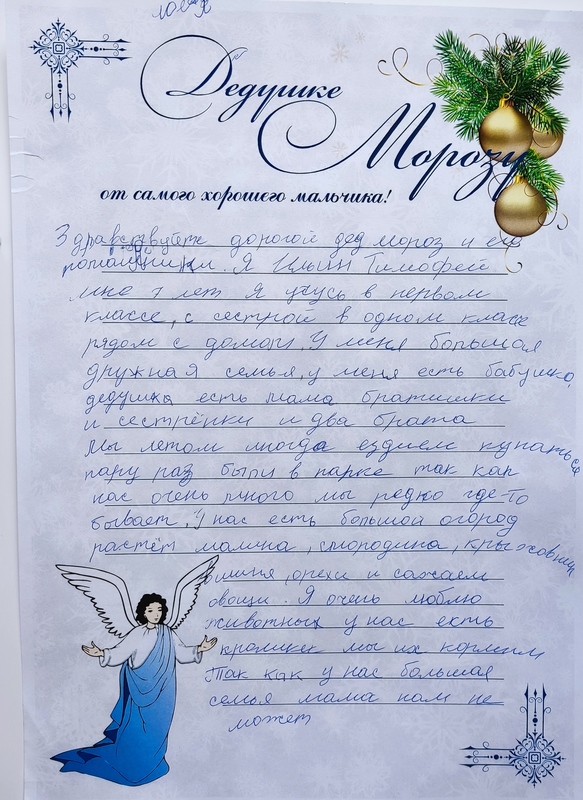 Дедушке
Морозу
от самого хорошего мальчика!
Здравствуйте дорогой дед мороз и его
помащники. Я Ильин Тимофей
мне 7 лет я учусь в первом
классе, с сестрой в одном классе
рядом с домом. У меня большая
дружная семья, у меня есть бабушка,
дедушка есть мама братишки
и сестрёнки и два брата
Мы летом иногда ездием купаться
пару раз были в парке так как
нас очень много мы редко где-то
бываем, У нас есть большой огород
растёт малина, смородина, крыжовник
вишня, орехи и сажаем
овощи. Я очень люблю
животных у нас есть
кролики мы их кормим
Так как у нас большая
семья мама нам не
может